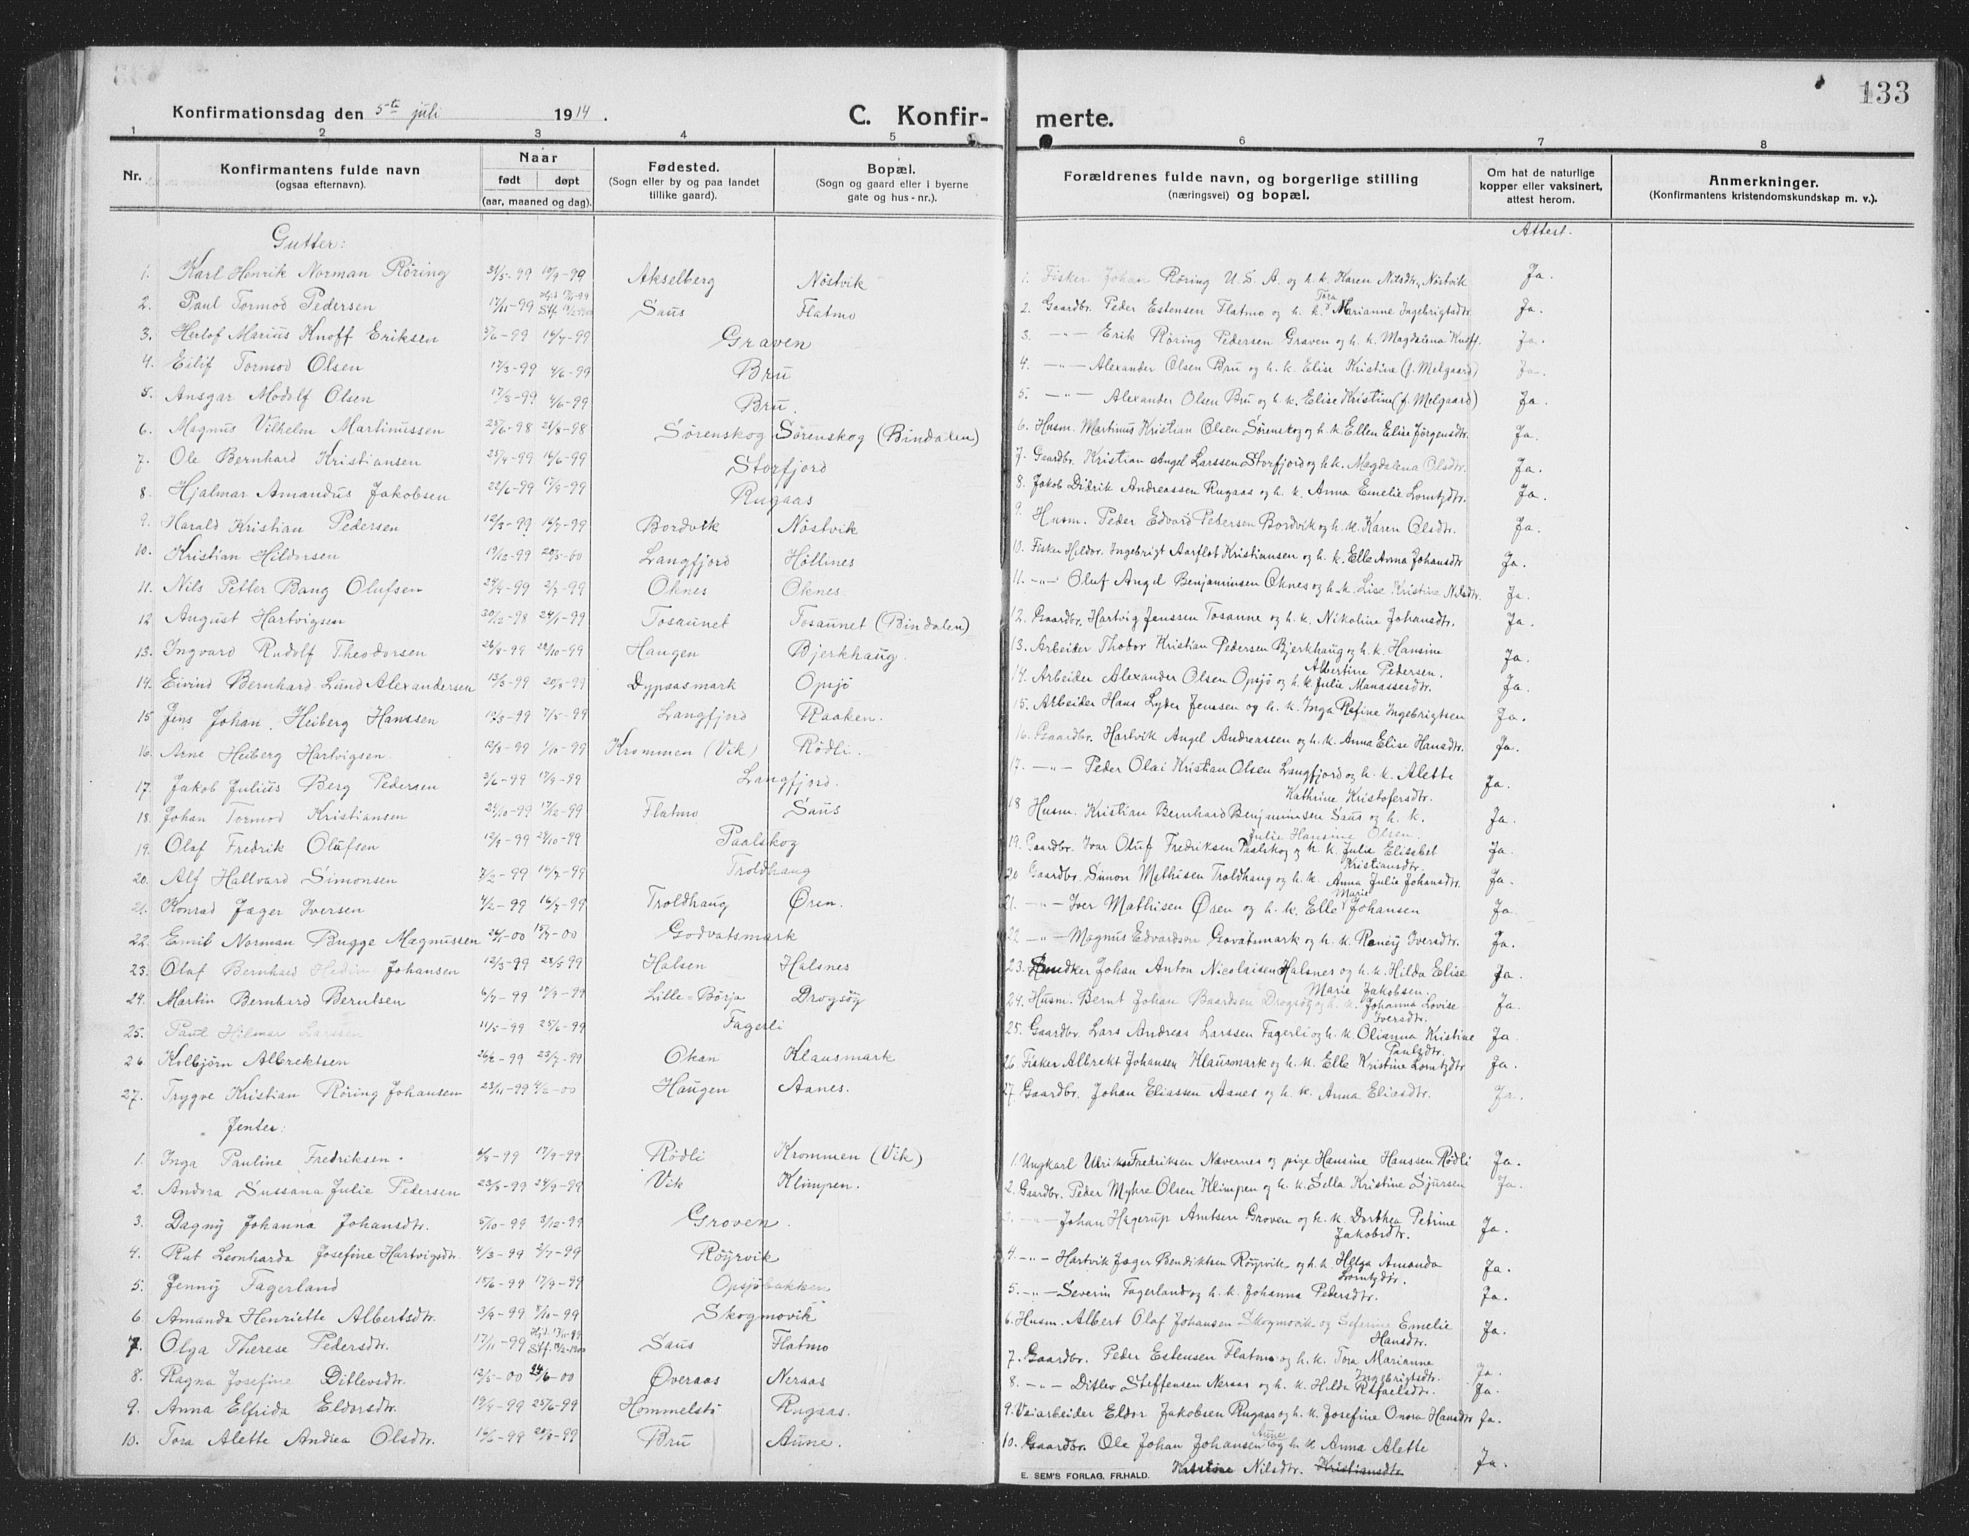 133
Konfirmationsdag den 5te juli 1914. C. Konfir- merte.
1 2 3 4 5 6 7 8
Nr. Konfirmantens fulde navn (ogsaa efternavn). Naar født døpt (aar, maaned og dag). Fødested. (Sogn eller by og paa landet tillike gaard). Bopæl. (Sogn og gaard eller i byerne gate og hus-nr.). Forældrenes fulde navn, og borgerlige stilling (næringsvei) og bopæl. Om hat de naturlige kopper eller vaksinert, attest herom. Anmerkninger. (Konfirmantens kristendomskundskap m. v.).
Gutter: Attest.
1. Karl Henrik Norman Røring 31/5-99 Akselberg Nöstvik 1. Fisker Johan Røring U. S. A. og h. k. Karen Nilsdtr, Nöstvik Ja.
2. Paul Tormod Pedersen 17/11-99 Saus Flatmo 2. Gaardbr. Peder Estensen Flatmo og h. k. Tora Marianne Ingebrigtsdtr. Ja.
3. Herlof Marius Knoff Eriksen Graven 3. -"- Erik Røring Pedersen Graven og h. k. Magdalena Knoff. Ja.
4. Eilif Tormod Olsen 17/3-99 4/6-99 Bru 4. -"- Alexander Olsen Bru og h. k. Elise Kristine (f. Melgaard) Ja.
5. Ansgar Modolf Olsen 17/3-99 4/6-99 Bru. 5. -"- Alexander Olsen Bru og h. k. Elise Kristine (f. Melgaard) Ja.
6. Magnus Vilhelm Martinussen 21/8-98 Sørenskog Sørenskog (Bindalen) 6. Husm. Martinus Kristian Olsen Sørenskog og h. k. Ellen Elise Jørgensdtr. Ja.
7. Ole Bernhard Kristiansen Storfjord 7. Gaardbr. Kristian Angel Larssen Storfjord og h. k. Magdalena Olsdtr. Ja.
8. Hjalmar Amandus Jakobsen 22/6-99 17/9-99 Rugaas 8. Jakob Didrik Andreassen Rugaas og h. k. Anna Emelie Lorntzdtr. Ja.
9. Harald Kristian Pedersen Bordvik Nöstvik 9. Husm. Peder Edvard Petersen Bordvik og h. k. Karen Olsdtr. Ja.
10. Kristian Hildorsen Langfjord Höllines 10. Fisker Hildor Ingebrigt Aarflot Kristiansen og h. k. Elle Anna Johansdtr Ja.
11. Nils Petter Bang Olufsen Oknes Oknes. 11. -"- Oluf Angel Benjaminsen Oknes og h. k. Lise Kristine Nilsdtr. Ja.
12 August Hartvigsen Tosaunet Tosaunet (Bindalen) 12. Gaardbr. Hartvig Janssen Tosanne og h. k. Nikoline Johansdtr. Ja.
13. Ingvard Rudolf Theodorsen Haugen Bjerkhaug. 13. Arbeider Thodor Kristian Pedersen Bjerkhaug og h. k. Hansine Albertine Pedersen. Ja.
14. Eivind Bernhard Lund Alexandersen Dypaasmark Opsjö 14. Arbeider Alexander Olsen Opsjö og h. k. Julie Manassesdtr. Ja.
15 Jens Johan Heiberg Hanssen 7/5-99 Langfjord Raaken. 15. Arbeider Hans Lyder Jenssen og h. k. Inga Refine Ingebrigtsen Ja.
16. Arne Heiberg Hartvigsen 1/10-99 Krommen (Vik) Rödli. 16. Gaardbr. Hartvik Angel Andreassen og h. k. Anna Elise Hansdtr. Ja.
17. Jakob Julius Berg Pedersen 3/6-99 17/9-99 Langfjord. 17. -"- Peder Olai Kristian Olsen Langfjord og h. k. Alette Kathrine Kristofersdtr. Ja.
18. Johan Tormod Kristiansen 17/12-99 Flatmo Saus 18 Husm. Kristian Bernhard Benjaminsen Saus og h. k. Julie Hansine Olsen. Ja.
19. Olaf Fredrik Olufsen Paalskog 19. Gaardbr. Ivar Oluf Fredriksen Paalskog og h. k. Julie Elisabet Kristiansdtr. Ja.
20. Alf Hallvard Simonsen 7/2-99 16/7-99 Troldhaug 20 Gaardbr. Simon Mathisen Troldhaug og h. k. Anna Julie Johansdtr. Ja.
21. Konrad Jæger Iversen 4/2-99 16/7-99 Troldhaug Øren. 21. -"- Iver Mathisen Øren og h. k. Elle Marie Johansen Ja.
22. Emil Norman Bugge Magnussen Godvatsmark 22 -"- Magnus Edvardsen Govatsmark og h. k. Ronøy Iversdtr. Ja.
23. Olaf Bernhard Hedin Johansen 12/3-99 28/5-99 Halsen Halsnes 23. Johan Anton Nicolaisen Halsnes og h. k. Hilda Elise Marie Jakobsen. Ja.
24. Martin Bernhard Berntsen 17/9-99 Lille-Börja Drogsöy 24. Husm. Bernt Johan Baardsen Drogsöy og h. k. Johanna Lovise Iversdtr. Ja.
25. Paul Hilmar Larssen 11/5-99 25/6-99 Fagerli 25. Gaardbr. Lars Andreas Larssen Fagerli og h. k. Olianna Kristine Paulsdtr. Ja.
26. Kolbjørn Albrektsen Okan Klausmark 26. Fisker Albrekt Johansen Klausmark og h. k. Elle Kristine Lorntzdtr Ja.
27. Trygve Kristian Röring Johansen 23/11-99 4/2-00 Haugen Aanes. 27. Gaardbr. Johan Eliassen Aanes og h. k. Anna Eliasdtr. Ja.
Jenter:
1. Inga Pauline Fredriksen. 17/9-99 Rödli Krommen (Vik) 1. Ungkarl Ulrik Fredriksen Nævernes og pige Hansine Hanssen Rödli Ja.
2. Andora Sussana Julie Pedersen 23/8-99 24/9-99 Vik Klimpen. 2. Gaardbr. Peder Myhre Olsen Klimpen og h. k. Sella Kristine Sjursen Ja.
3. Dagny Johanna Johansdtr. 5/10-99 3/12-99 Groven. -"- Johan Hagerup Arntsen Groven og h. k. Dorthea Petrine Jakobsdtr. Ja.
4. Rut Leonharda Josefine Hartvigsdtr. 4/3-99 Röyrvik 4. -"- Hartvik Jæger Bendiktsen Röyrvik og h. k. Helga Amanda Lorntzdtr. Ja.
5. Jenny Fagerland 17/9-99 Opsjöbakken 5. -"- Severin Fagerland og h. k. Johanna Pedersdtr. Ja.
6. Amanda Henriette Albertsdtr. 3/9-99 Skogmovik 6. Husm. Albert Olaf Johansen Skogmovik og Seferine Emelie Hansdtr. Ja.
7. Olga Therese Pedersdtr. 17/11-99 Saus Flatmo 7. Gaardbr. Peder Estensen Flatmo og h. k. Tora Marianne Ingebrigtsdtr. Ja.
8. Ragna Josefine Ditlevsdtr. 12/5-00 24/6-00 Øveraas Neraas 8. -"- Ditlev Steffensen Neraas og h. k. Hilda Rafaelsdtr. Ja.
9. Anna Elfrida Eldorsdtr. 25/6-99 Hommelstö Rugaas. 9. Veiarbeider Eldor Jakobsen Rugaas og h. k. Josefine Onora Hansdtr Ja.
10. Tora Alette Andrea Olsdtr. Bru Aune. 10. Gaardbr. Ole Johan Johansen Aune og h. k. Anna Alette Kristine Nilsdtr. Kristiansdtr Ja.
E. SEM'S FORLAG, FR.HALD.